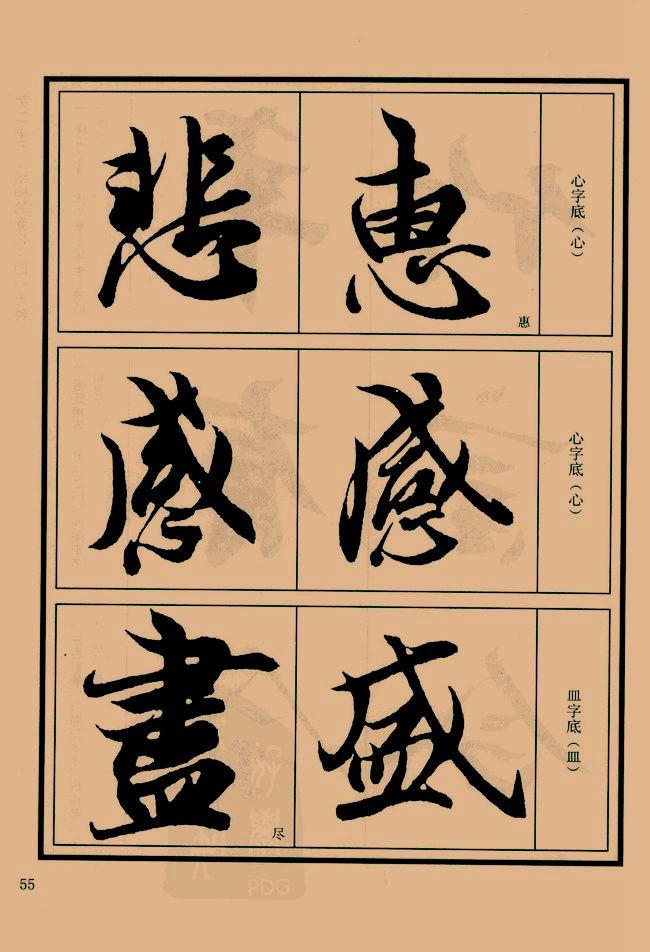 心字底（心）
惠
惠
悲
心字底（心）
感
感
皿字底（皿）
盛
盡
尽
55
PDG